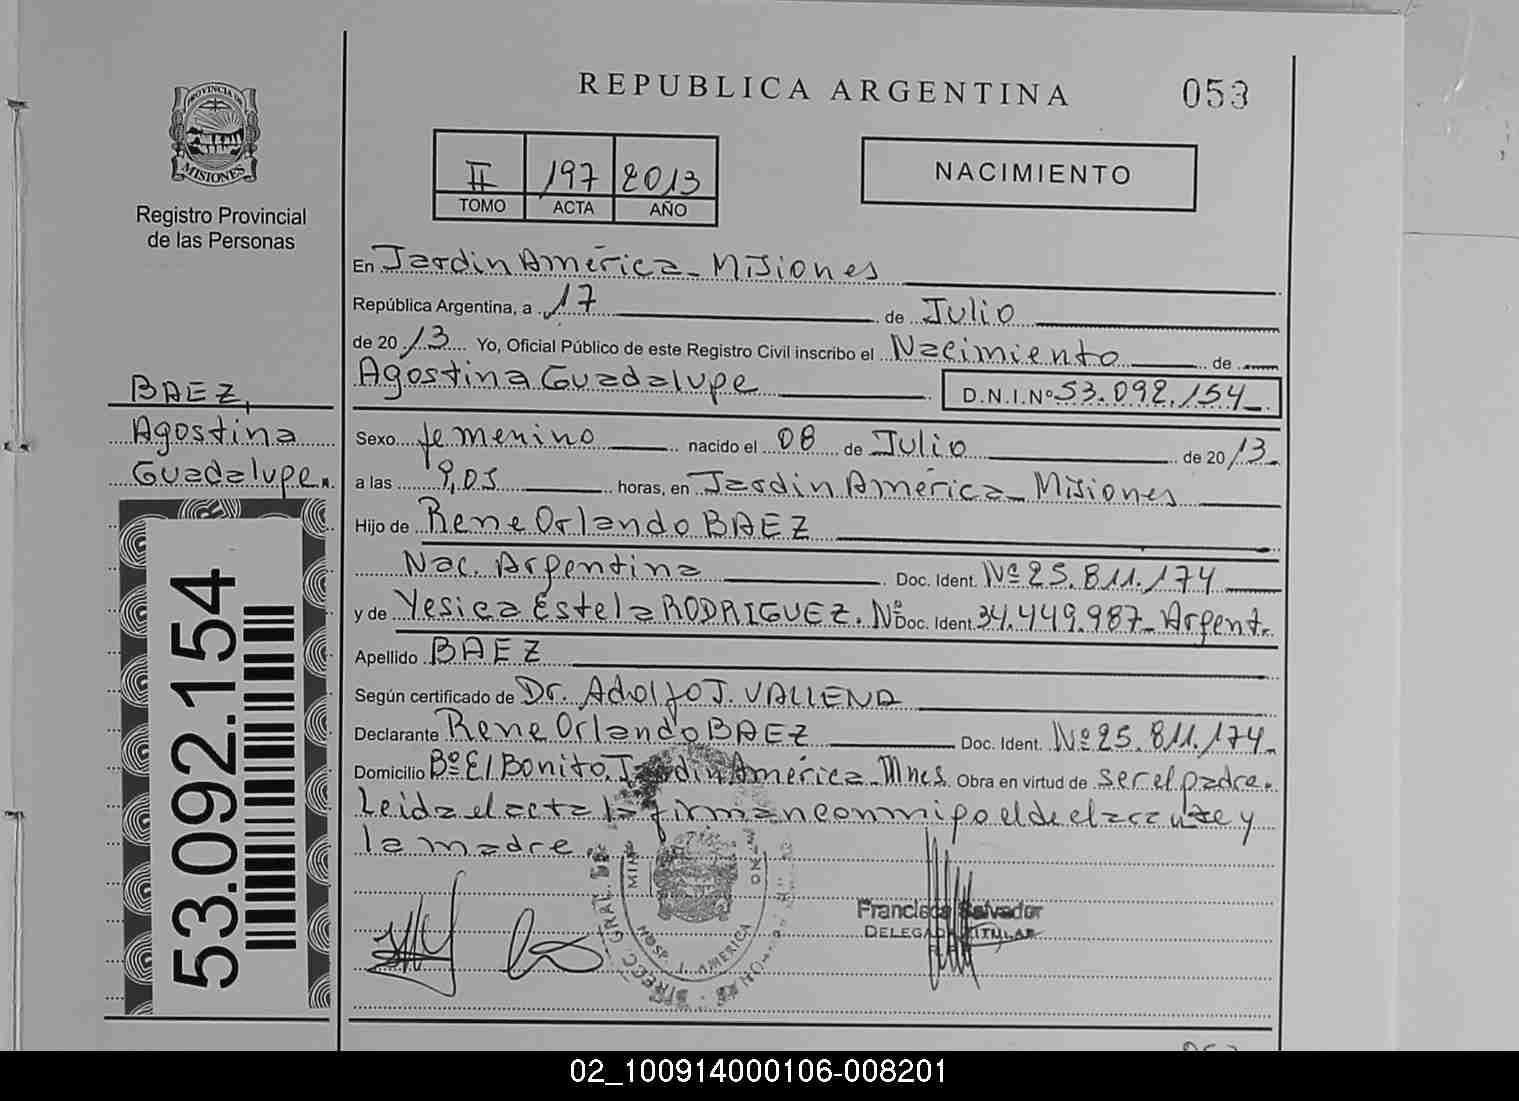 REPUBLICA ARGENTINA
053
PROVINCIA DE
MISIONES
Registro Provincial
de las Personas
II 197 2013
TOMO ACTA AÑO
NACIMIENTO
En Jardin América - Misiones
República Argentina, a 17 de Julio
de 2013 Yo, Oficial Público de este Registro Civil inscribo el Nacimiento de
Agostina Guadalupe D.N.I.Nº 53.092.154
BAEZ,
Agostina
Guadalupe.
53.092.154
Sexo femenino nacido el 08 de Julio de 2013
a las 9,05 horas, en Jardin América - Misiones
Hijo de Rene Orlando BAEZ
Nac. Argentina Doc. Ident. Nº 25.811.174
y de Yesica Estela RODRIGUEZ. Nº Doc. Ident. 34.449.987 - Argent.
Apellido BAEZ
Según certificado de Dr. Adolfo J. VALLENA
Declarante Rene Orlando BAEZ Doc. Ident. Nº 25.811.174
Domicilio Bº El Bonito, Jardin América - Mnes Obra en virtud de ser el padre.
Leida el acta la firman conmigo el declarante y
la madre.
DIRECC. GRAL. DE
HOSP. J. AMERICA
Francisca Salvador
DELEGADA TITULAR
02_100914000106-008201